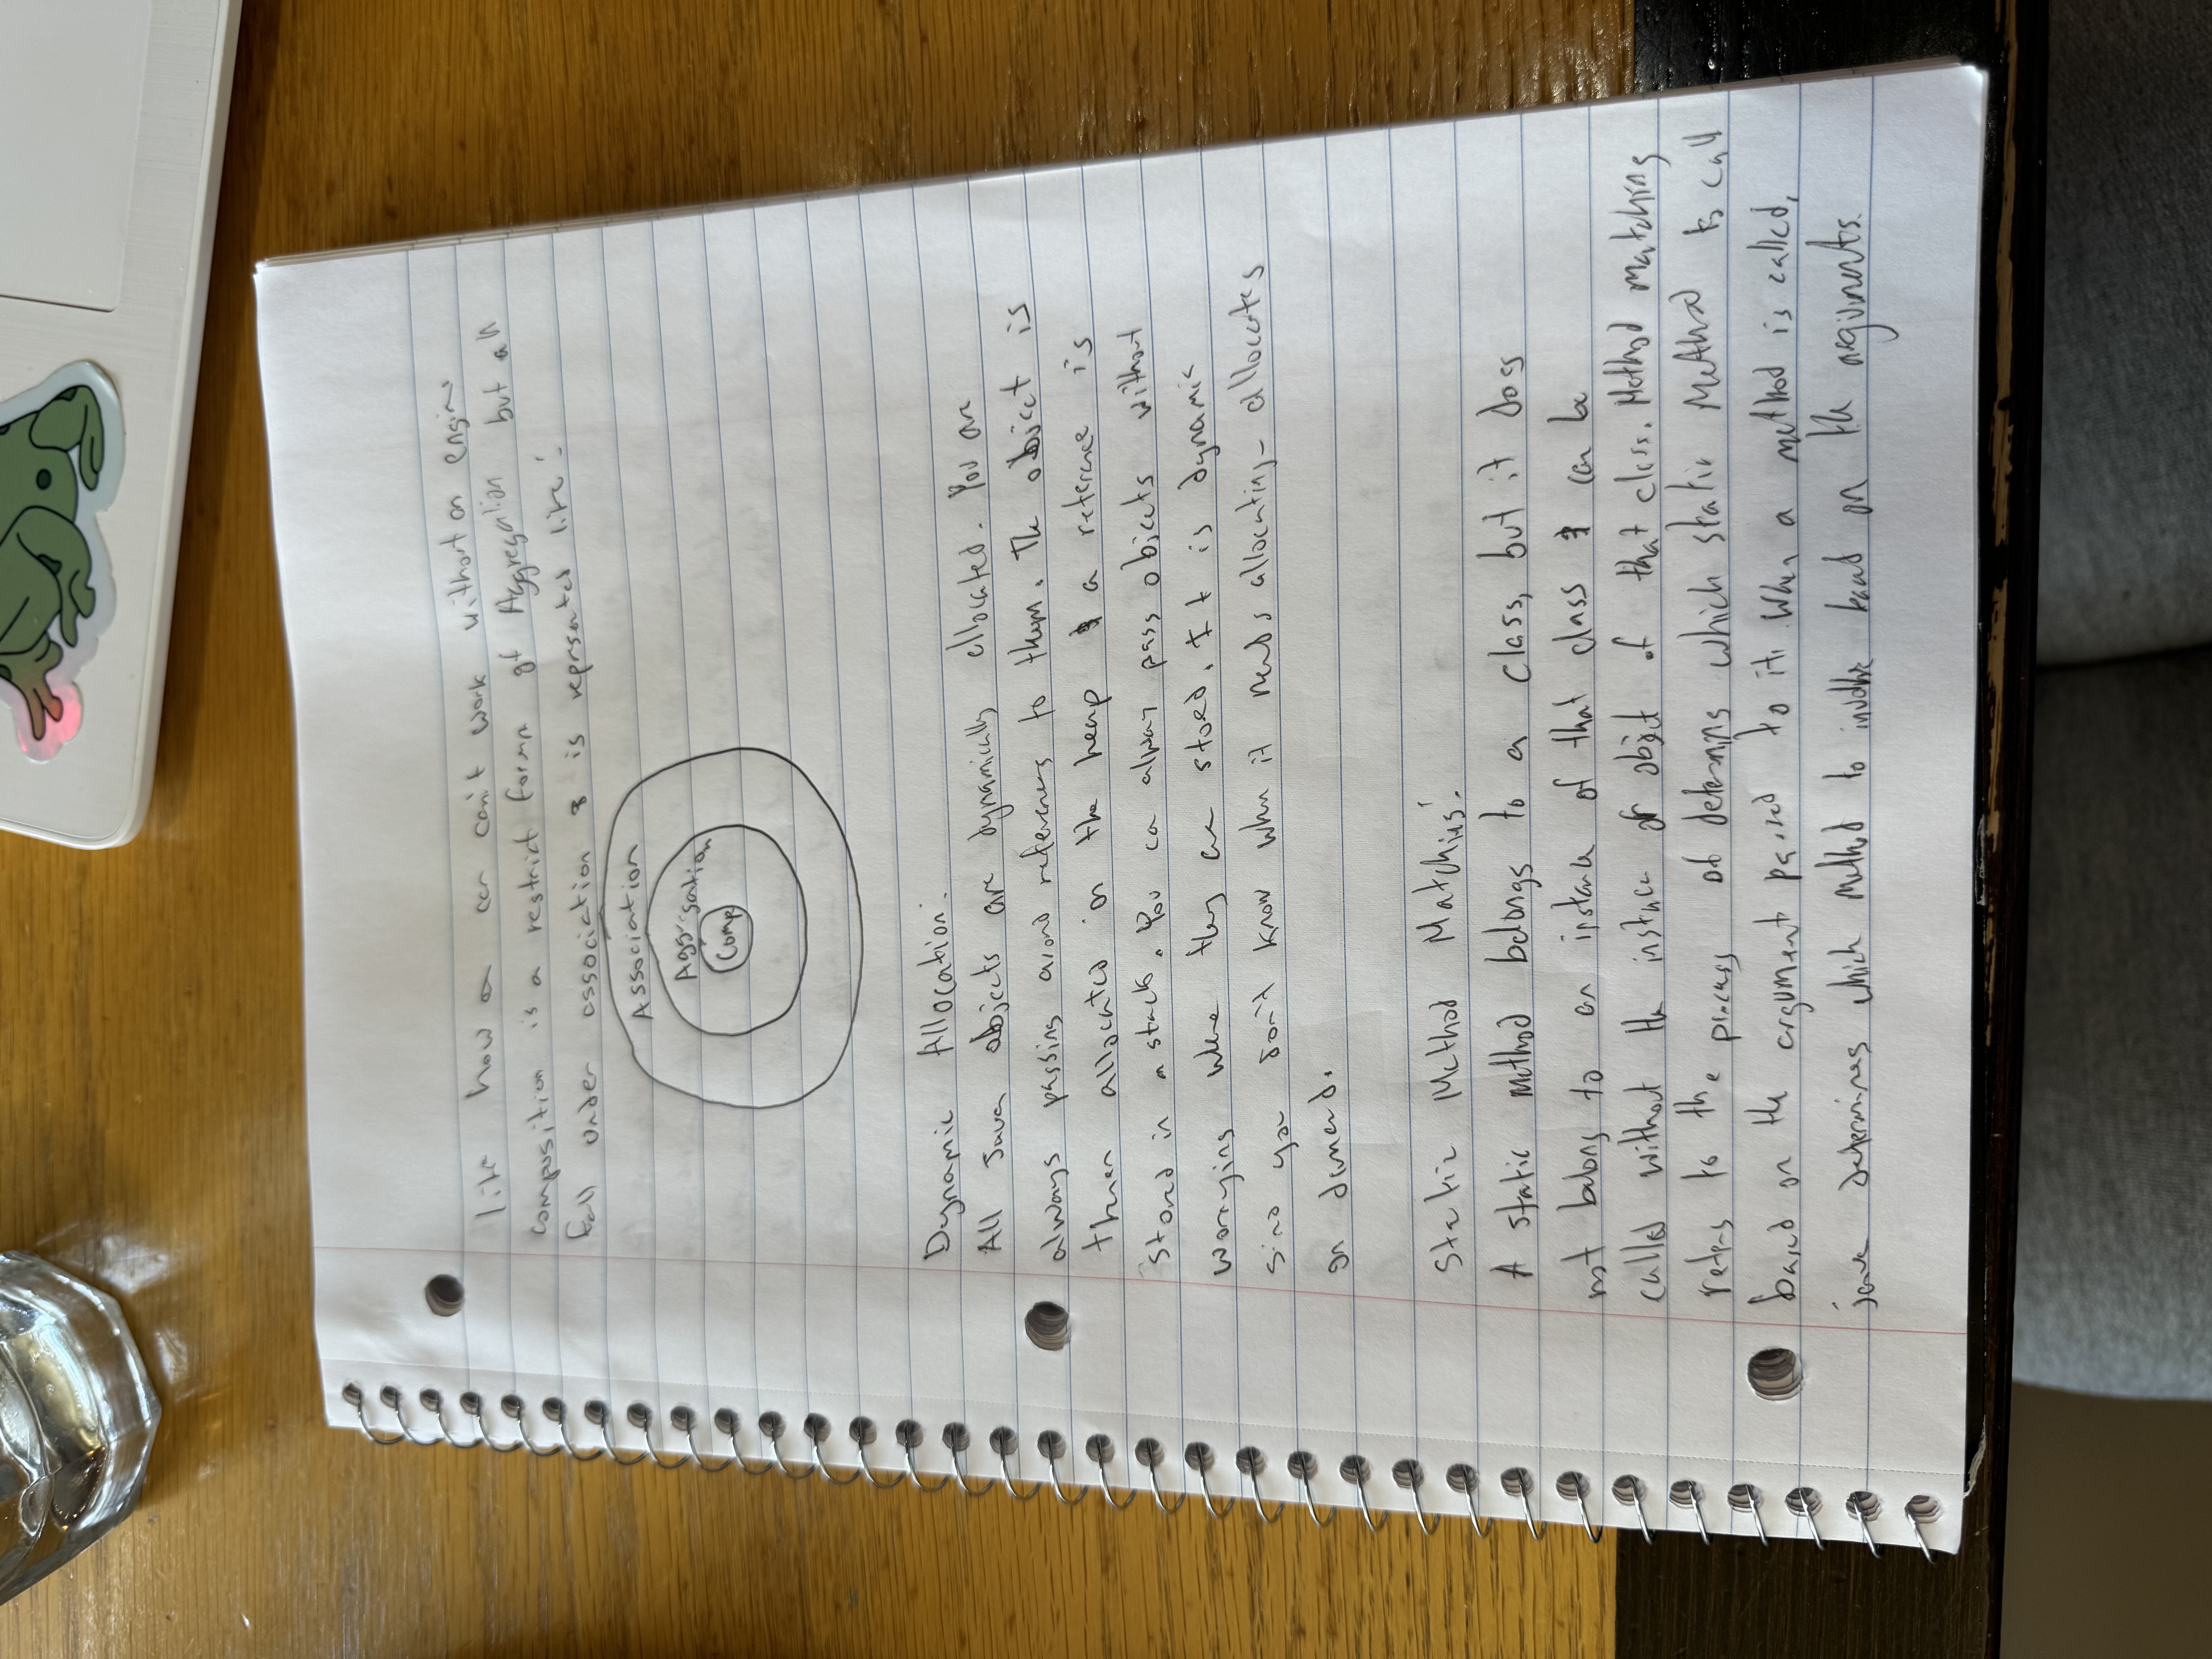 like how a car can't work without an engine
composition is a restrict form of Aggregation but all
fall under association & is reprsented like:
Association
Aggregation
Comp
Dynamic Allocation:
All Java objects are dynamically allocated. You are
always passing around references to them. The object is
then allocated on the heap & a reference is
stored in a stack. You ca alway pass objects without
worrying where they are stored. It is dynamic
since you don't know when it needs allocating - allocates
on demand.
Static Method Matching:
A static method belongs to a class, but it does
not belong to an instance of that class & can be
called without the instance or object of that class. Method matching
refers to the process of determing which static Method to call
based on the argument passed to it. When a method is called,
java determines which method to invoke based on the arguments.